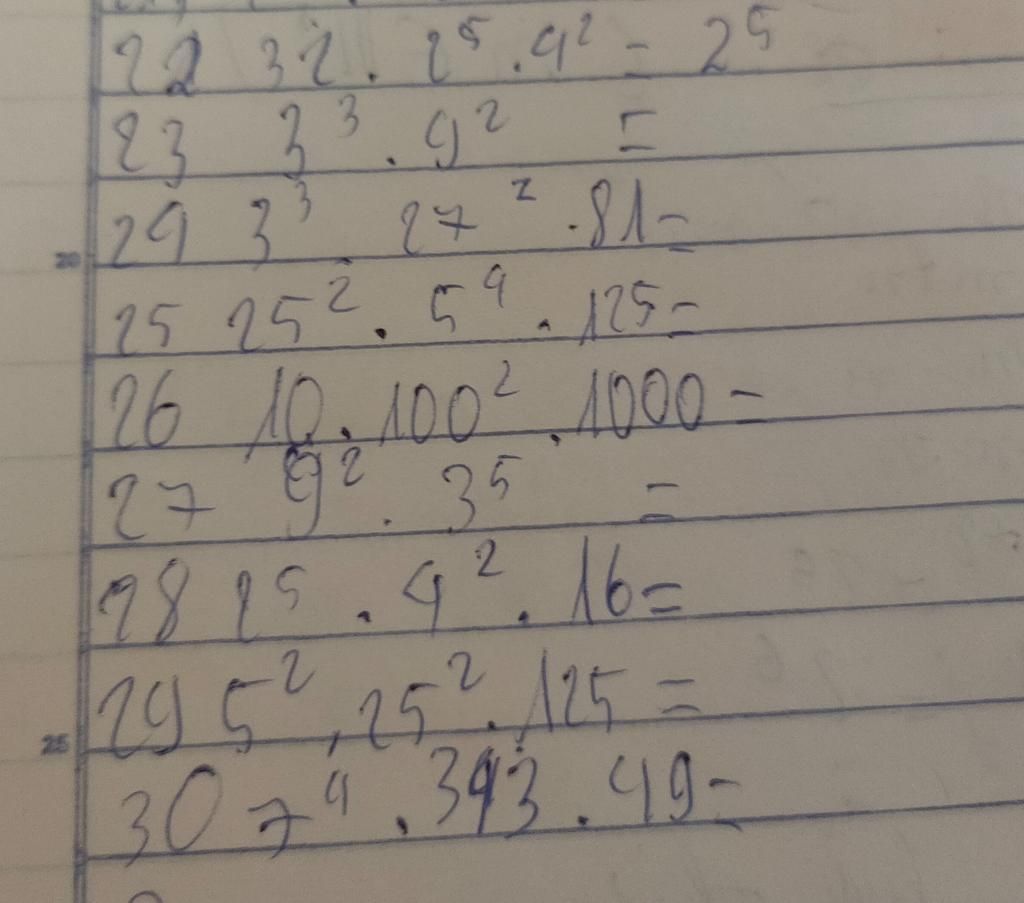 22 32 . 2⁵ . 4² = 2⁵
23 3³ . 9² =
24 3³ 27² . 81 =
25 25² . 5⁴ . 125 =
26 10 . 100² . 1000 =
27 9² . 3⁵ =
28 2⁵ . 4² . 16 =
29 5² . 25² . 125 =
30 7⁴ . 343 . 49 =
20
25